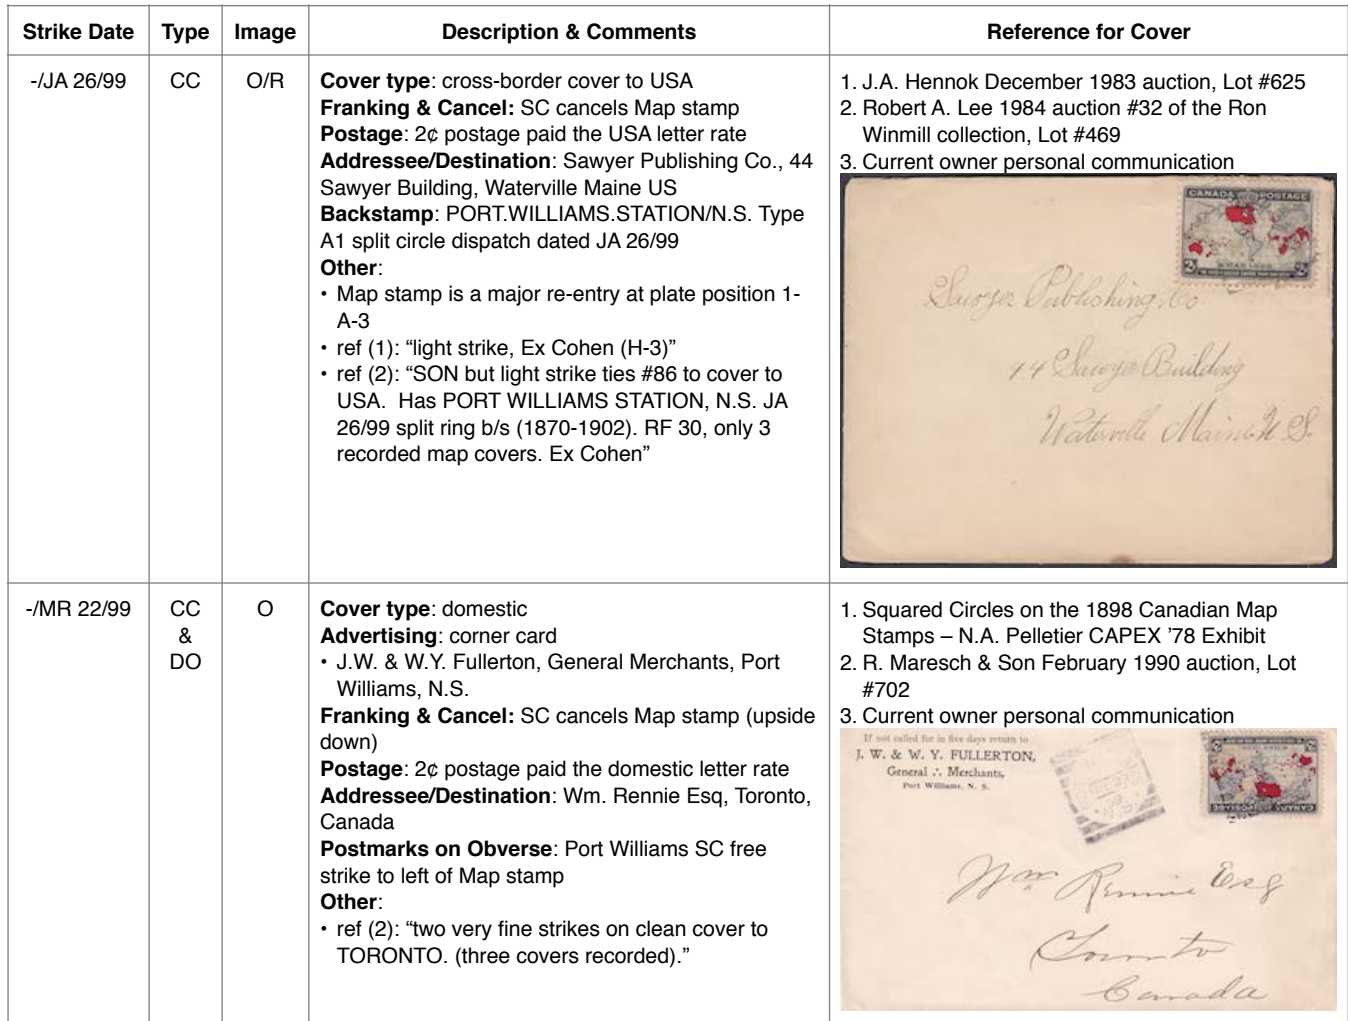 Strike Date Type Image Description & Comments Reference for Cover
-/JA 26/99 CC O/R
Cover type: cross-border cover to USA
Franking & Cancel: SC cancels Map stamp
Postage: 2¢ postage paid the USA letter rate
Addressee/Destination: Sawyer Publishing Co., 44
Sawyer Building, Waterville Maine US
Backstamp: PORT.WILLIAMS.STATION/N.S. Type
A1 split circle dispatch dated JA 26/99
Other:
• Map stamp is a major re-entry at plate position 1-
A-3
• ref (1): “light strike, Ex Cohen (H-3)”
• ref (2): “SON but light strike ties #86 to cover to
USA. Has PORT WILLIAMS STATION, N.S. JA
26/99 split ring b/s (1870-1902). RF 30, only 3
recorded map covers. Ex Cohen”
1. J.A. Hennok December 1983 auction, Lot #625
2. Robert A. Lee 1984 auction #32 of the Ron
Winmill collection, Lot #469
3. Current owner personal communication
CANADA POSTAGE
XMAS 1898
Sawyer Publishing Co.
44 Sawyer Building
Waterville Maine U S.
-/MR 22/99 CC & DO O
Cover type: domestic
Advertising: corner card
• J.W. & W.Y. Fullerton, General Merchants, Port
Williams, N.S.
Franking & Cancel: SC cancels Map stamp (upside
down)
Postage: 2¢ postage paid the domestic letter rate
Addressee/Destination: Wm. Rennie Esq, Toronto,
Canada
Postmarks on Obverse: Port Williams SC free
strike to left of Map stamp
Other:
• ref (2): “two very fine strikes on clean cover to
TORONTO. (three covers recorded).”
1. Squared Circles on the 1898 Canadian Map
Stamps – N.A. Pelletier CAPEX ’78 Exhibit
2. R. Maresch & Son February 1990 auction, Lot
#702
3. Current owner personal communication
If not called for in five days return to
J. W. & W. Y. FULLERTON,
General ∴ Merchants,
Port Williams, N. S.
CANADA POSTAGE
Wm Rennie Esq
Toronto
Canada